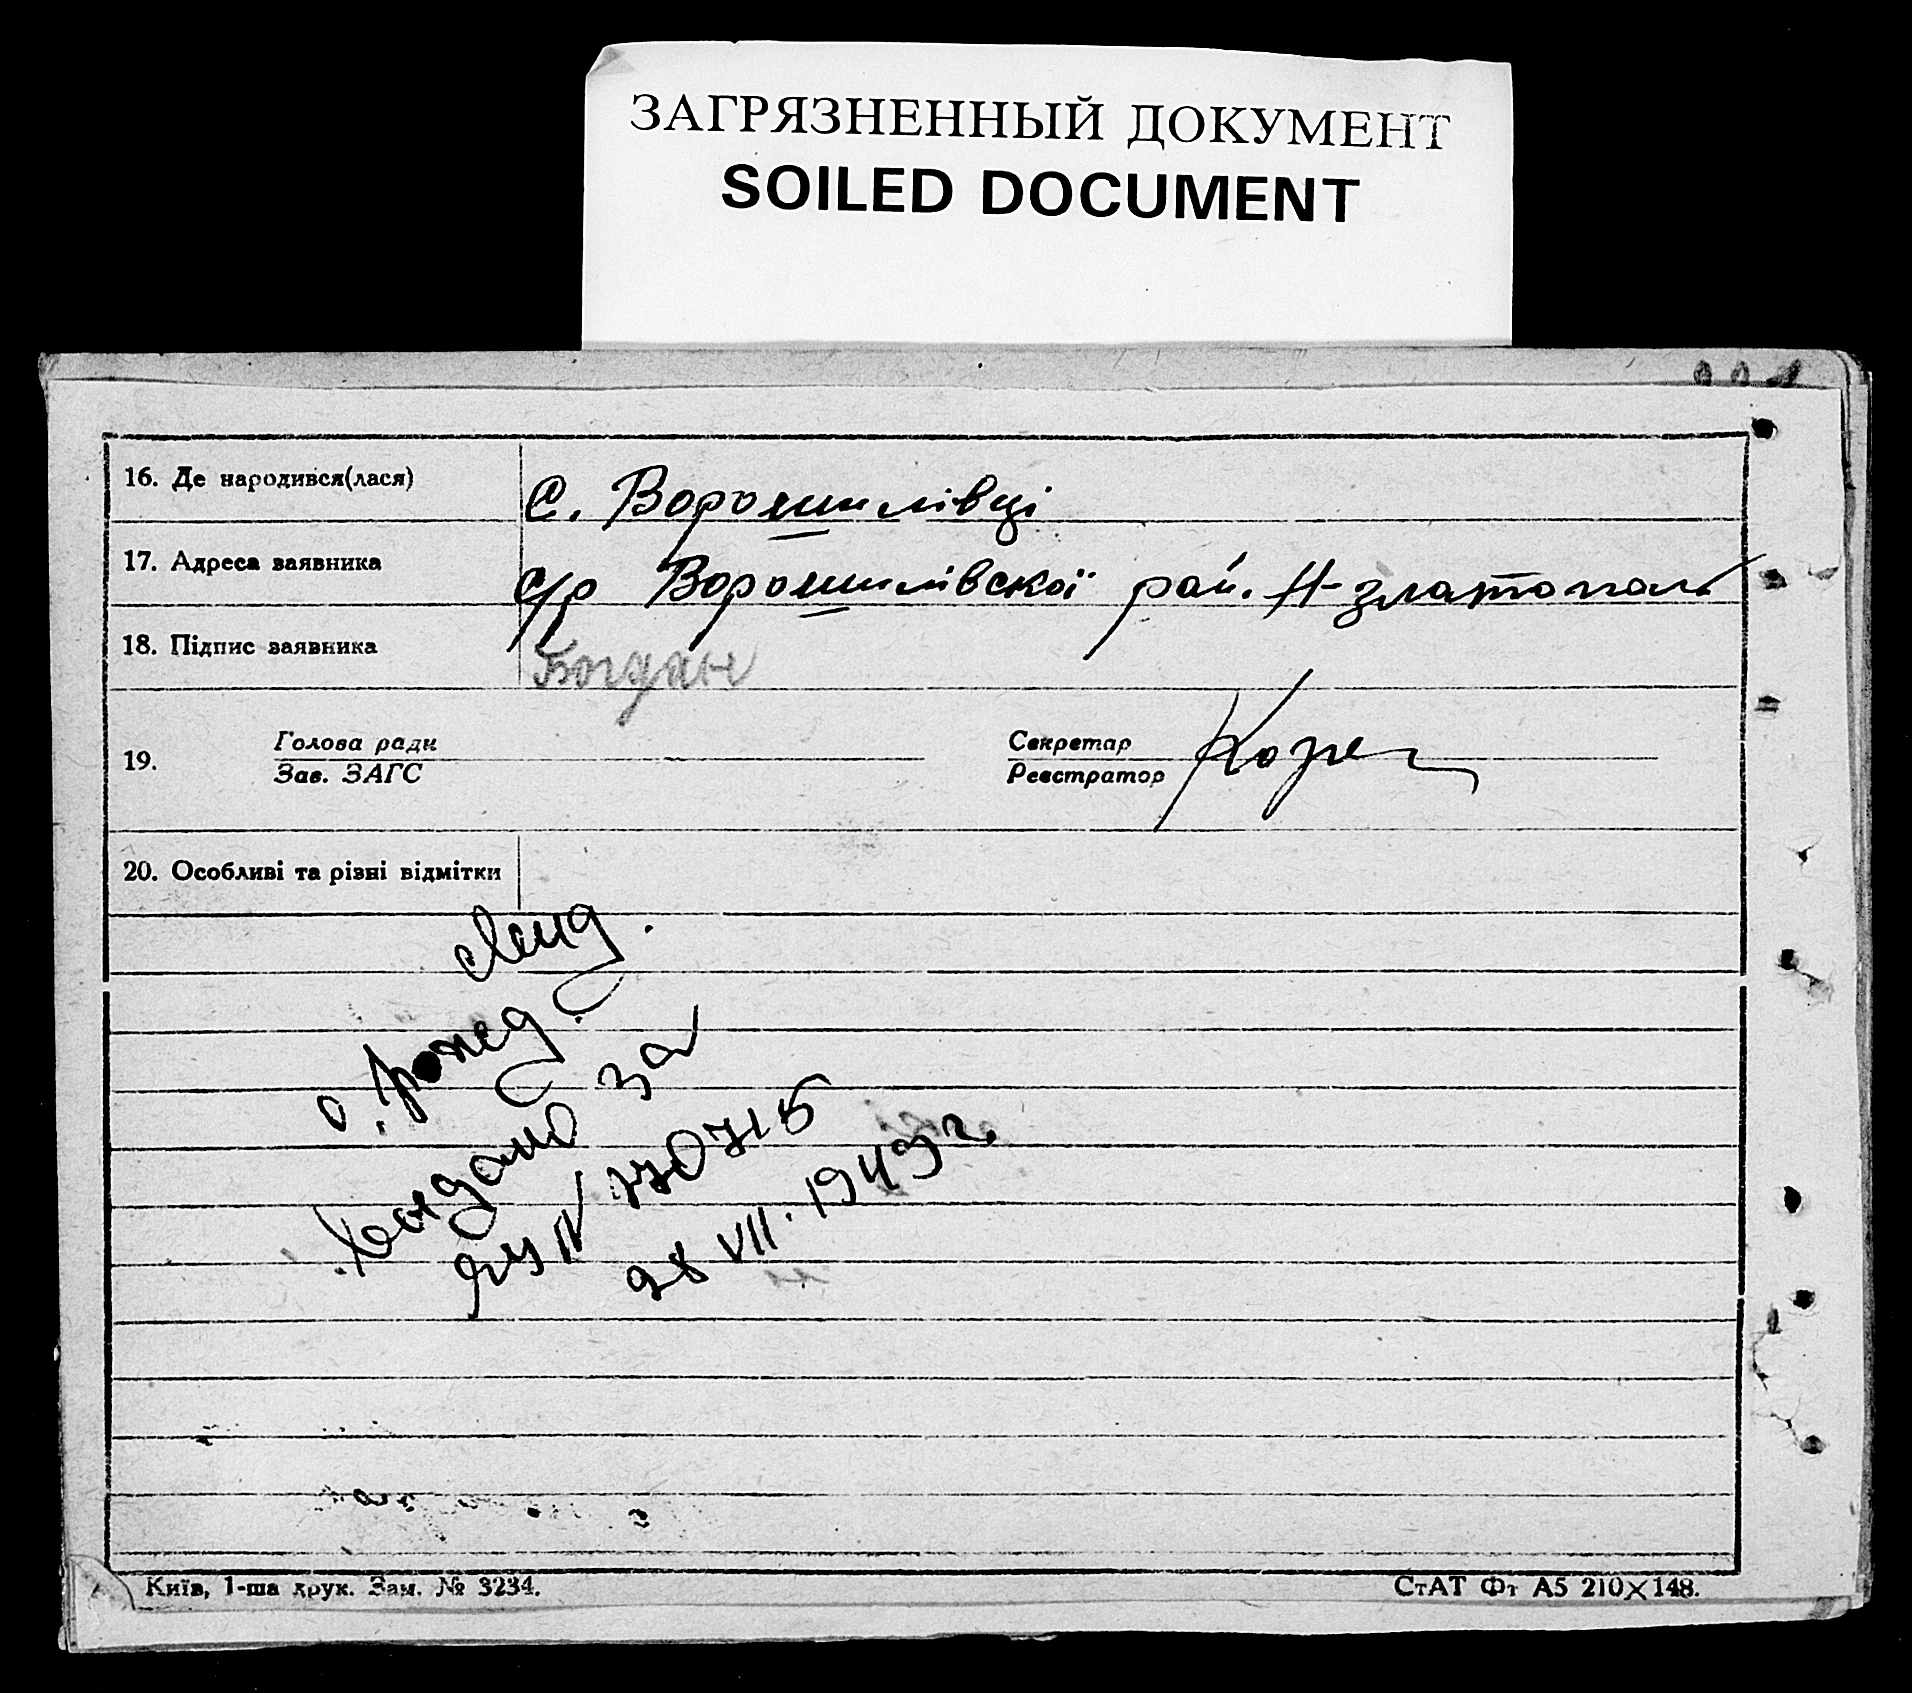 ЗАГРЯЗНЕННЫЙ ДОКУМЕНТ
SOILED DOCUMENT
16. Де народився(лася) с. Ворошилівці
17. Адреса заявника с/р Ворошилівскої рай. Н-златополь
18. Підпис заявника Богдан
19. Голова ради Секретар
Зав. ЗАГС Реєстратор
20. Особливі та різні відмітки
о рожд.
за
28 VII. 1949 г.
Київ, 1-ша друк. Зам. № 3234. СтАТ Фт А5 210×148.